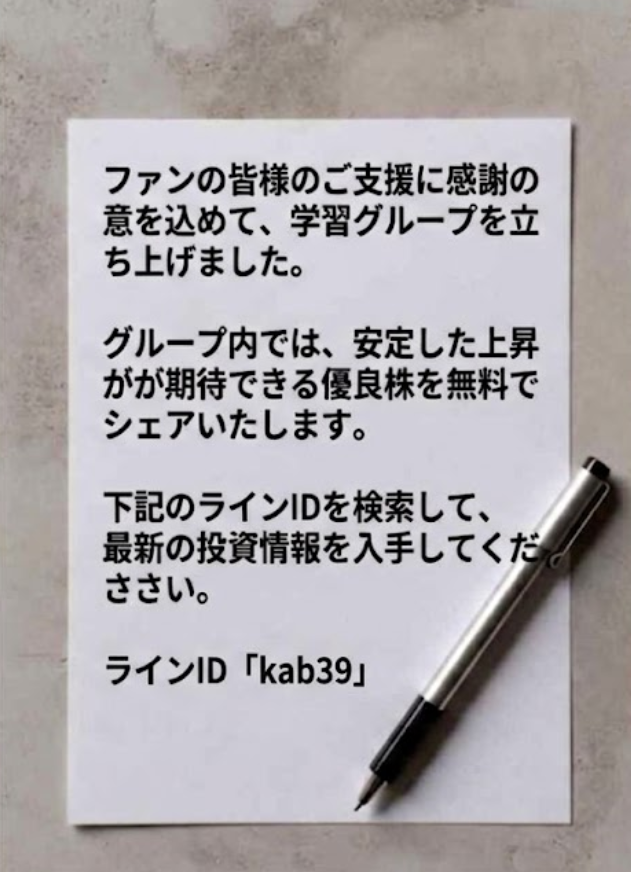 ファンの皆様のご支援に感謝の
意を込めて、学習グループを立
ち上げました。
グループ内では、安定した上昇
がが期待できる優良株を無料で
シェアいたします。
下記のラインIDを検索して、
最新の投資情報を入手してくだ
ささい。
ラインID「kab39」